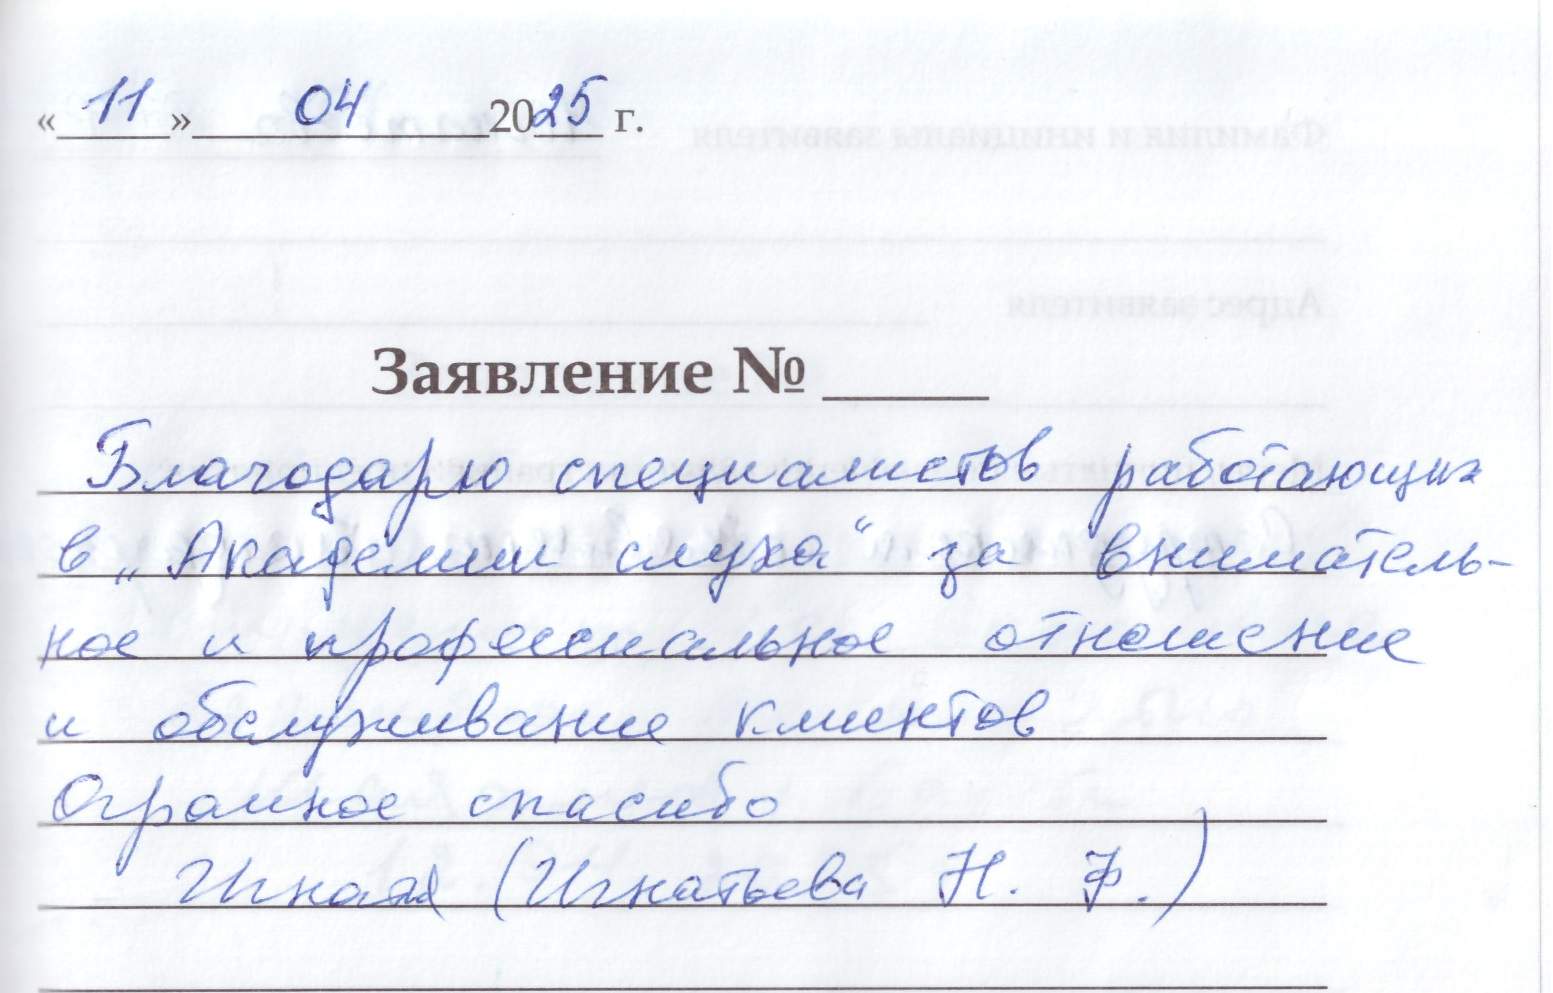 «11» 04 2025 г.
Заявление № ______
Благодарю специалистов работающих
в „Академии слуха“ за вниматель-
ное и профессиальное отношение
и обслуживание клиентов
Огромное спасибо
(Игнатьева Н. Ф.)